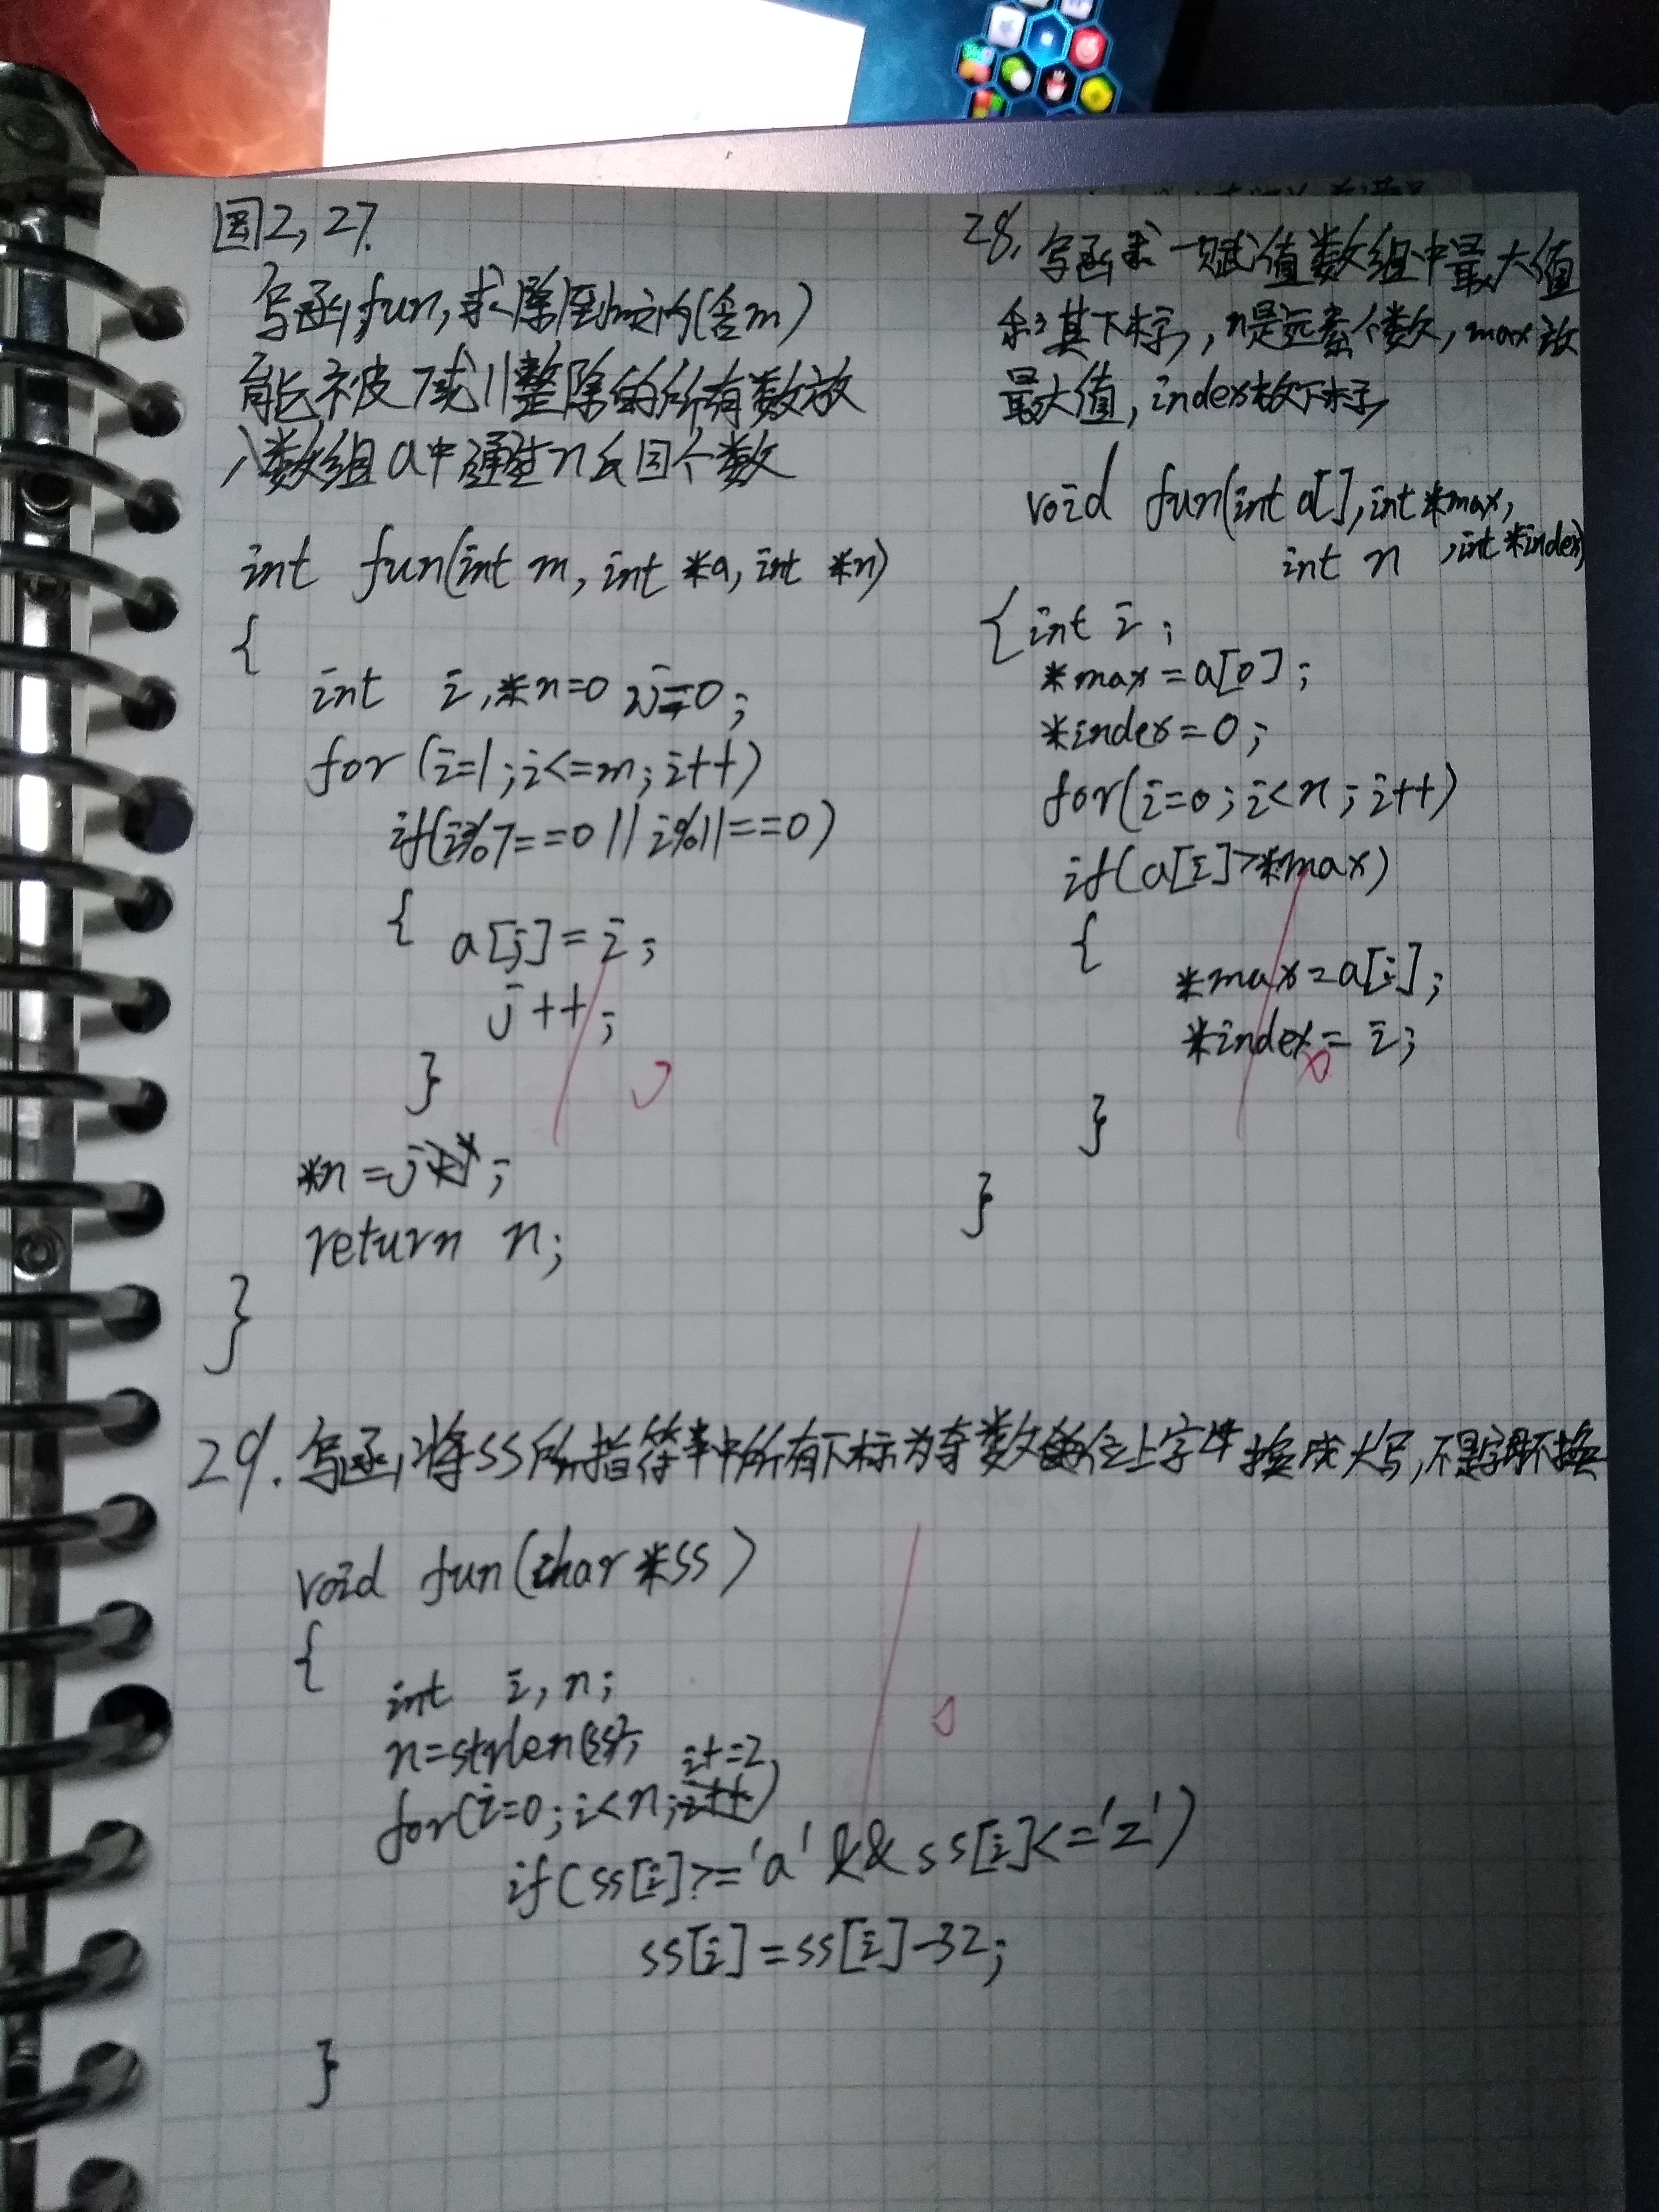 图2, 27.
写函, fun, 求 到m之内(含m)
能被7或11整除的所有数放
入数组a中通过n返回个数
int fun(int m, int *a, int *n)
{
int i, *n=0, j=0;
for (i=1; i<=m; i++)
if(i%7==0 || i%11==0)
{ a[j]=i;
j++;
}
*n=j;
return n;
}
28. 写函求一赋值数组中最大值
和其下标, n是元素个数, max放
最大值, index放下标
void fun(int a[], int *max,
int n , int *index)
{ int i;
*max=a[0];
*index=0;
for(i=0; i<n; i++)
if(a[i]>*max)
{
*max=a[i];
*index=i;
}
}
29. 写函, 将ss所指符串中所有下标为奇数的位上字母换成大写, 不是字母不换
void fun(char *ss)
{
int i, n;
n=strlen(ss);
i+=2,
for(i=0; i<n; i++)
if(ss[i]>='a' && ss[i]<='z')
ss[i]=ss[i]-32;
}